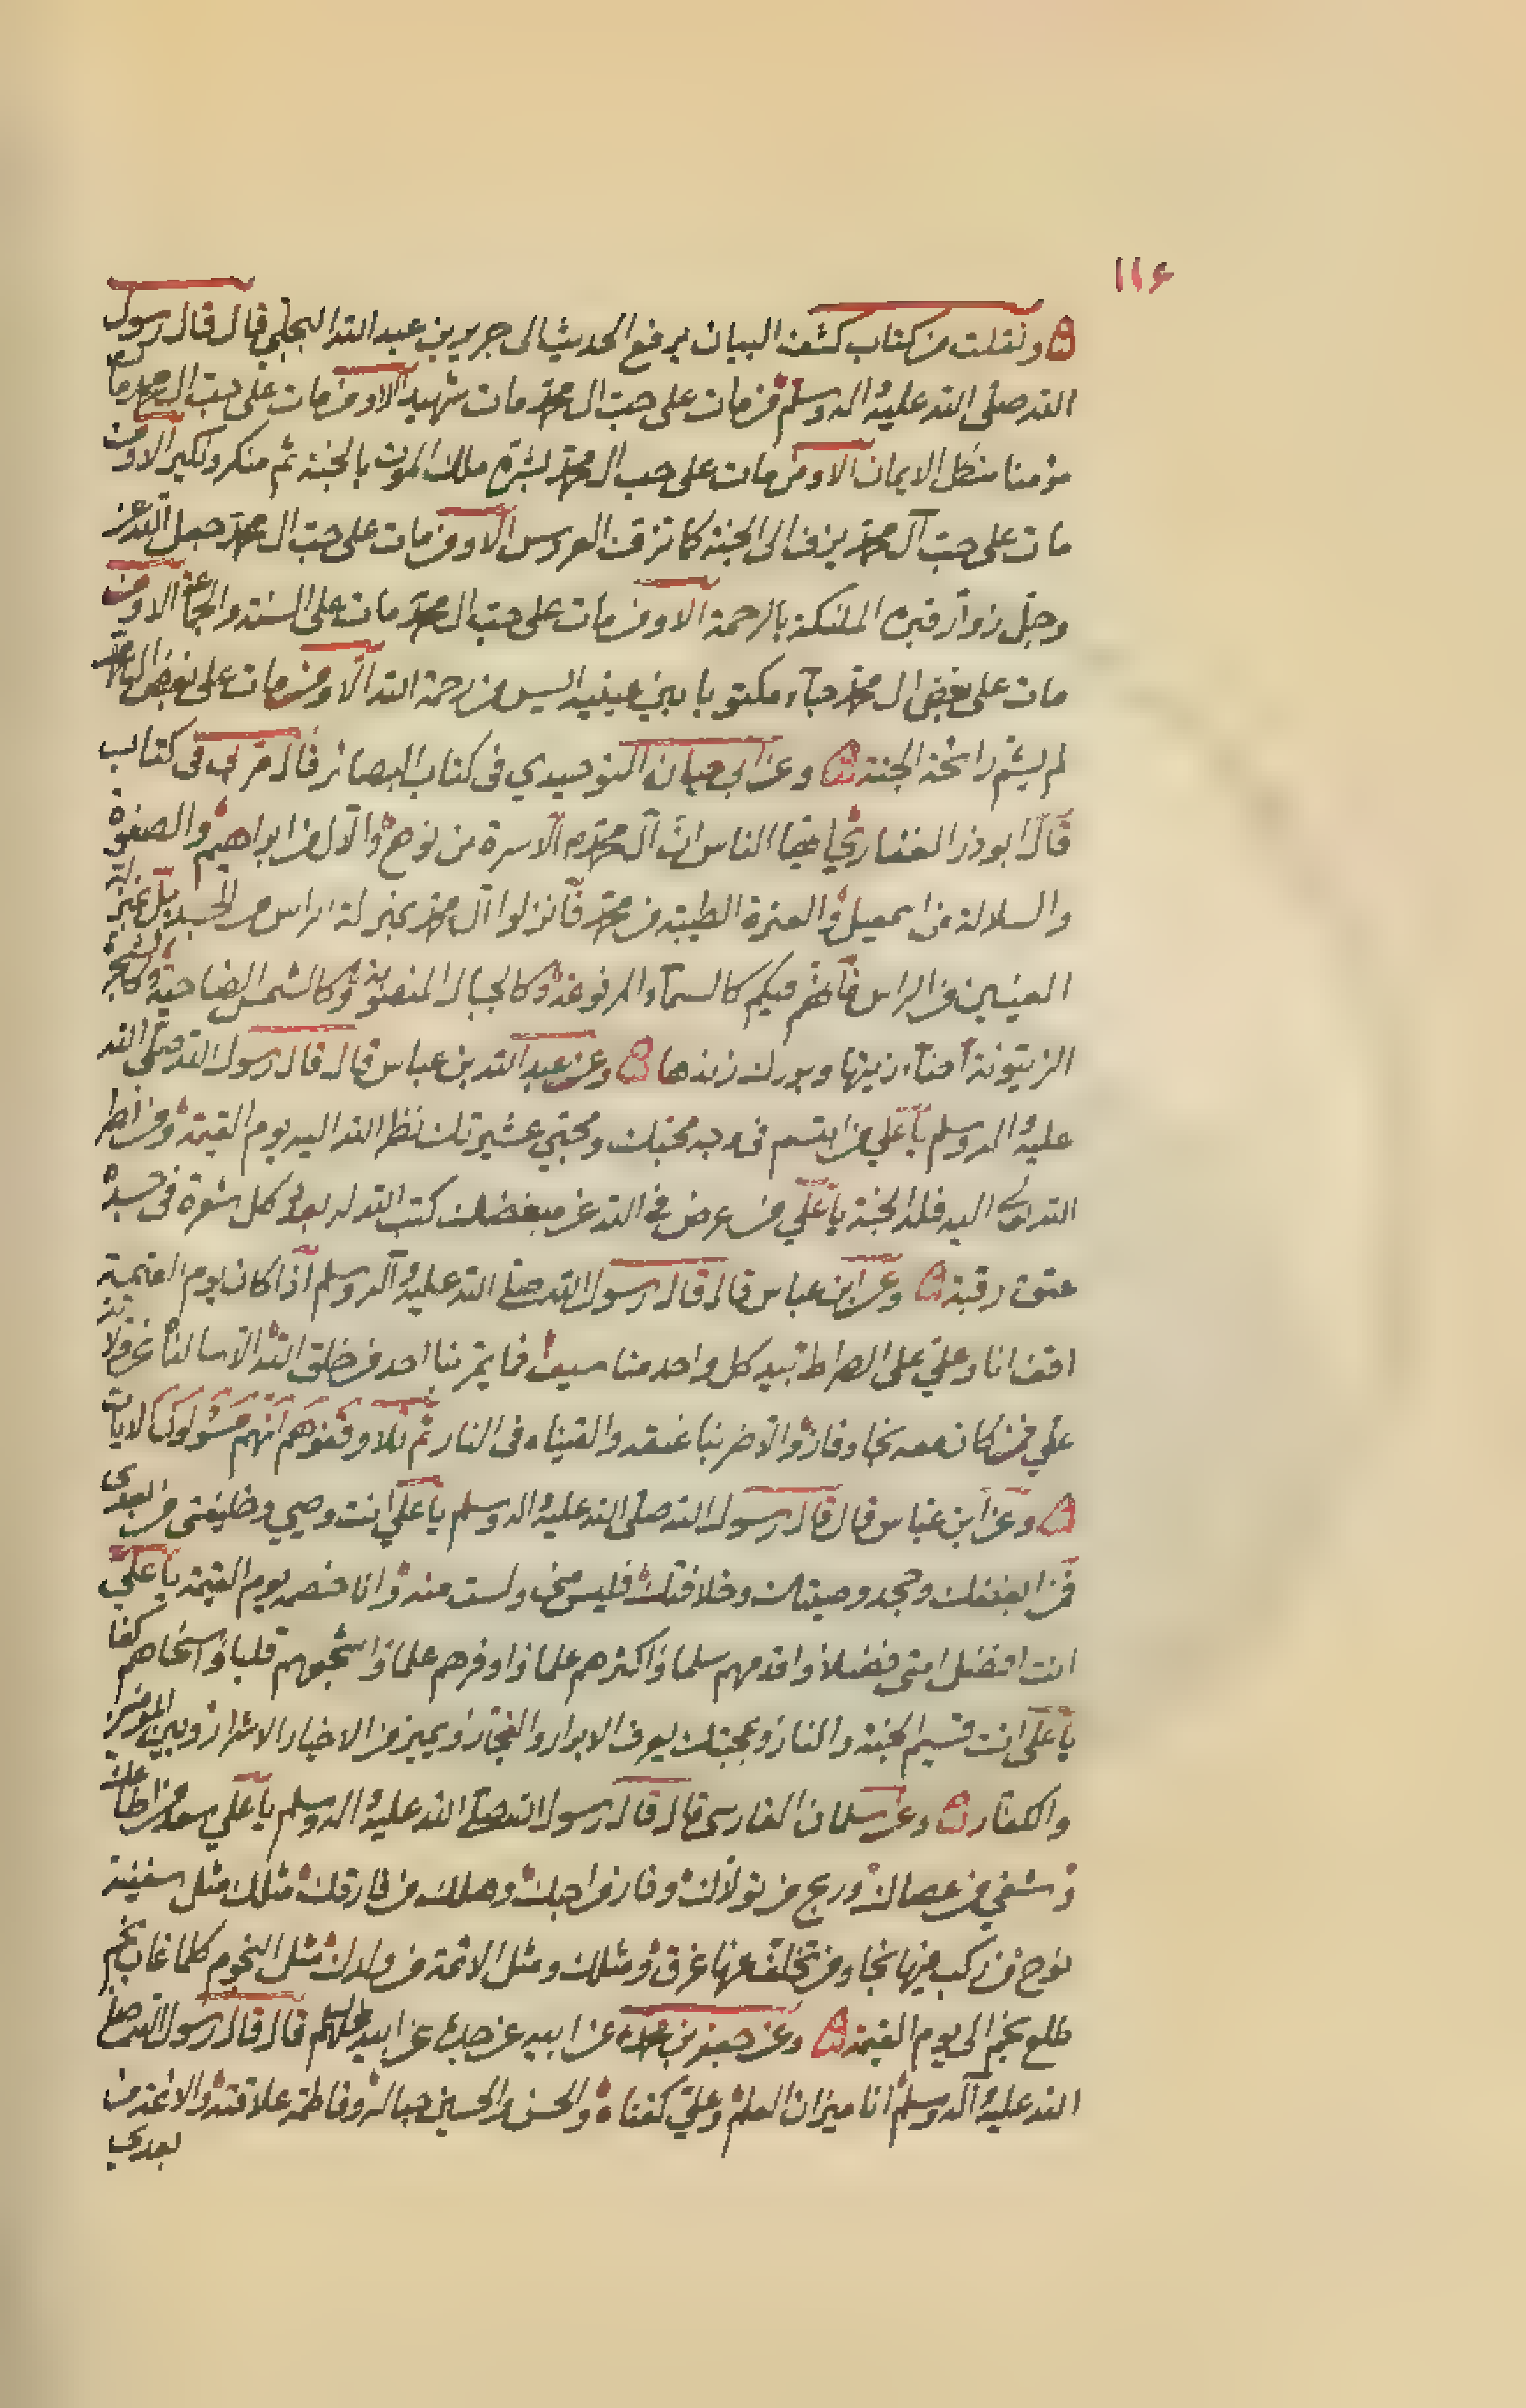 ١١٤
ونقلت من كتاب كشف البيان يرفع الحديث الى جرير بن عبد الله البجلي قال قال رسول
الله صلى الله عليه واله وسلم من مات على حب ال محمد مات شهيدا الا ومن مات على حب ال محمد مات
مؤمنا متكمل الايمان الا ومن مات على حب ال محمد بشره ملك الموت بالجنة ثم منكر ونكير الا ومن
مات على حب آل محمد يزف الى الجنة كما تزف العروس الا ومن مات على حب ال محمد جعل الله عز
وجل زوار قبره الملئكة بالرحمة الا ومن مات على حب ال محمد مات على السنة والجماعة الا ومن
مات على بغض ال محمد جآء مكتوبا بين عينيه ايس من رحمة الله الا ومن مات على بغض ال محمد
لم يشم رائحة الجنة وعن ابي حيان التوحيدي في كتاب البصائر قال قرئ في كتاب
قال ابو ذر الغفاري ايها الناس ان آل محمد الاسرة من نوح والآل من ابراهيم والصفوة
والسلالة من اسمعيل والعترة الطيبة من محمد فانزلوا آل محمد بمنزلة الراس من الجسد بل بمنزلة
العينين من الراس فانهم فيكم كالسمآء المرفوعة وكالجبال المنصوبة وكالشمس الضاحية وكالشجرة
الزيتونة اضآء زيتها وبورك زندها وعن عبد الله بن عباس قال قال رسول الله صلى الله
عليه واله وسلم يا علي من ابتسم في وجه محبك ومحبي عشيرتك نظر الله اليه يوم القيمة ومن نظر
الله اليه فله الجنة يا علي من عرض في الله عن مبغضك كتب الله له بعدد كل شعرة في جسده
عتق رقبة وعن ابن عباس قال قال رسول الله صلى الله عليه وآله وسلم اذا كان يوم القيمة
اقف انا وعلي على الصراط بيد كل واحد منا سيف فما يمر بنا احد من خلق الله الا سالناه عن ولاية
علي فمن كان معه نجا وفاز والا ضربنا عنقه والقيناه في النار ثم تلا وقفوهم انهم مسؤلون الايات
وعن ابن عباس قال قال رسول الله صلى الله عليه واله وسلم يا علي انت وصيي وخليفتي من بعدي
فمن ابغضك وجحد وصيتك وخلافتك فليس مني ولست منه وانا خصمه يوم القيمة يا علي
انت افضل امتي فضلا واقدمهم سلما واكثرهم علما واوفرهم علما واشجعهم قلبا واسخاهم كفا
يا علي انت قسيم الجنة والنار وبمحبتك يعرف الابرار والفجار ويميز من الاخيار الاشرار وبين المؤمنين
والكفار وعن سلمان الفارسي قال قال رسول الله صلى الله عليه واله وسلم يا علي سعد من اطاعك
وشقي من عصاك وربح من تولاك وفاز من احبك وهلك من فارقك مثلك مثل سفينة
نوح من ركب فيها نجا ومن تخلف عنها غرق ومثلك ومثل الائمة من ولدك مثل النجوم كلما غاب نجم
طلع نجم الى يوم القيمة وعن جعفر بن محمد عن ابيه عن جده عن ابيه عليهم قال قال رسول الله صلى
الله عليه وآله وسلم انا ميزان العلم وعلي كفتاه والحسن والحسين حباله وفاطمة علاقته والائمة من
بعدي